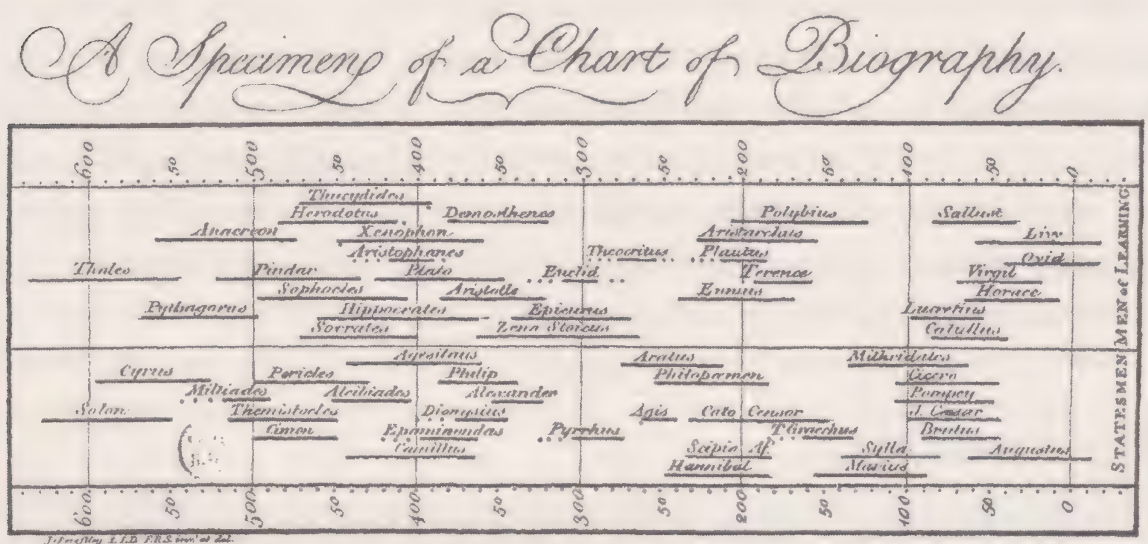 A Specimen of a Chart of Biography.
600 50 500 50 400 50 300 50 200 50 100 50 0
Thucydides
Herodotus Demosthenes Polybius Sallust
Anacreon Xenophon Aristarchus Livy
Aristophanes Theocritus Plautus Ovid
Thales Pindar Plato Euclid Terence Virgil
Sophocles Aristotle Ennius Horace
Pythagoras Hippocrates Epicurus Lucretius
Socrates Zeno Stoicus Catullus
MEN of LEARNING
Agesilaus Aratus Mithridates
Cyrus Pericles Philip Philopœmen Cicero
Miltiades Alcibiades Alexander Pompey
Solon Themistocles Dionysius Agis Cato Censor J. Cæsar
Cimon Epaminondas Pyrrhus T. Gracchus Brutus
Camillus Scipio Af. Sylla Augustus
Hannibal Marius
STATESMEN
600 50 500 50 400 50 300 50 200 50 100 50 0
J. Priestley L.L.D. F.R.S. inv.t et del.